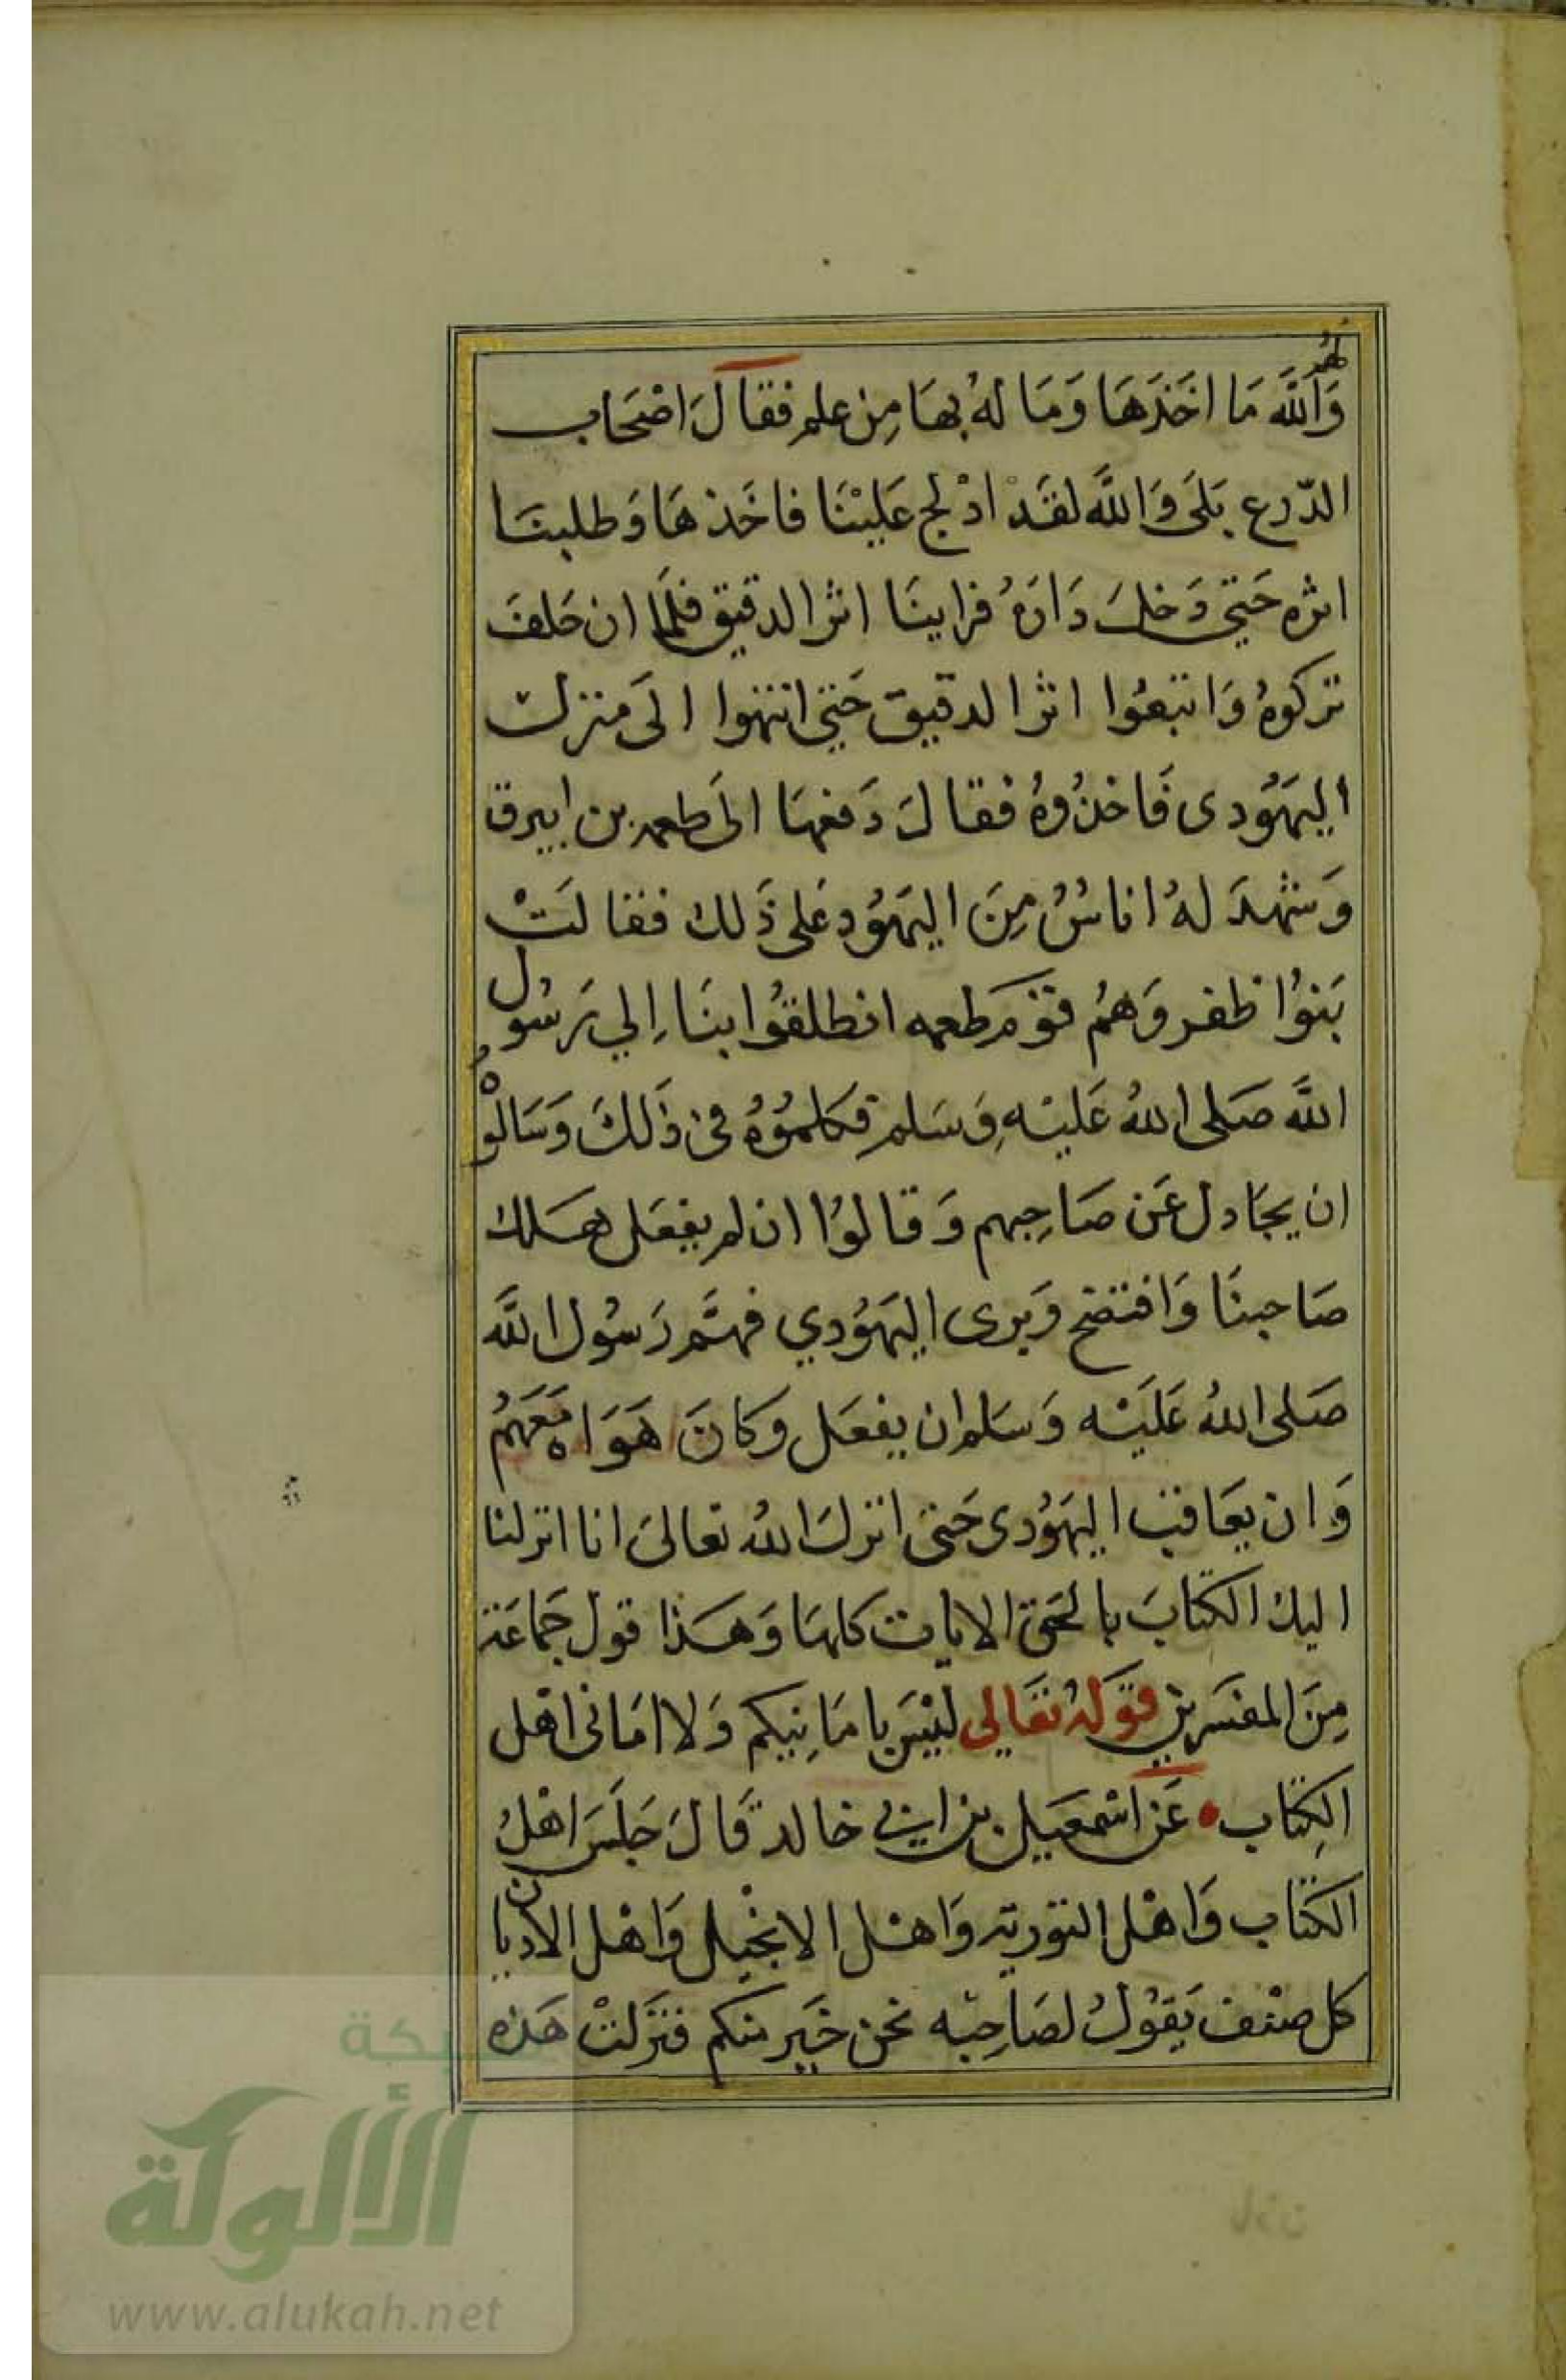 لهم
وَاللَّه مَا اخَذهَا وَمَا لهُ بهَا مِن علم فقالَ اصْحَاب
الدّرع بَلَى وَاللَّه لقَدْ ادْلج عَليْنَا فاخَذهَا وَطلبنَا
اثره حَتي دَخل دَارَهُ فراينَا اثر الدقيق فلمَا ان حَلف
تركوهُ وَاتبعُوا اثر الدقيق حَتي انتهوا الىَ منزل
اليهَوُدى فَاخذُوهُ فقالَ دَفعهَا الىَ طعمه بن ابيرق
وَشهدَ لهُ اناسُ مِنَ اليهَوُد عَلى ذَلك فقالتْ
بَنوُا ظفر وَهمُ قومَ طعمه انطلقوُا بنَا اِلي رَسُول
اللَّه صَلى اللهُ عَليْهِ وَسَلم فكلموُهُ في ذَلكَ وَسَالوْه
ان يجَادل عَن صَاحِبهم وَقالوُا ان لم يفعَل هَلك
صَاحبنَا وَافتضح وَيرى اليهَوُدي فهمَّ رَسُول اللَّه
صَلى اللهُ عَليَه وَسَلم ان يفعَل وَكانَ هَوَاه مَعَهمُ
وَان يعَاقب اليهَوُدى حَتى انزلَ اللهُ تعالىَ انا انزلنا
اليك الكتابَ بالحَق الايات كلهَا وَهَذا قول جَماعَة
مِنَ المفسَرين قوَلهُ تعَالي ليْسَ بامَانِيكم وَلا امَانى اهْل
الكِتاب عَن اسْمعَيل بن ابي خالد قَالَ جَلسَ اهْلُ
الكتاب وَاهْل التوريه وَاهْل الانجيل وَاهْل الاديان
كل صنْف يَقوُلُ لصَاحِبه نحن خَير منكم فنزَلتْ هَذه
شبكة
الألوكة
www.alukah.net